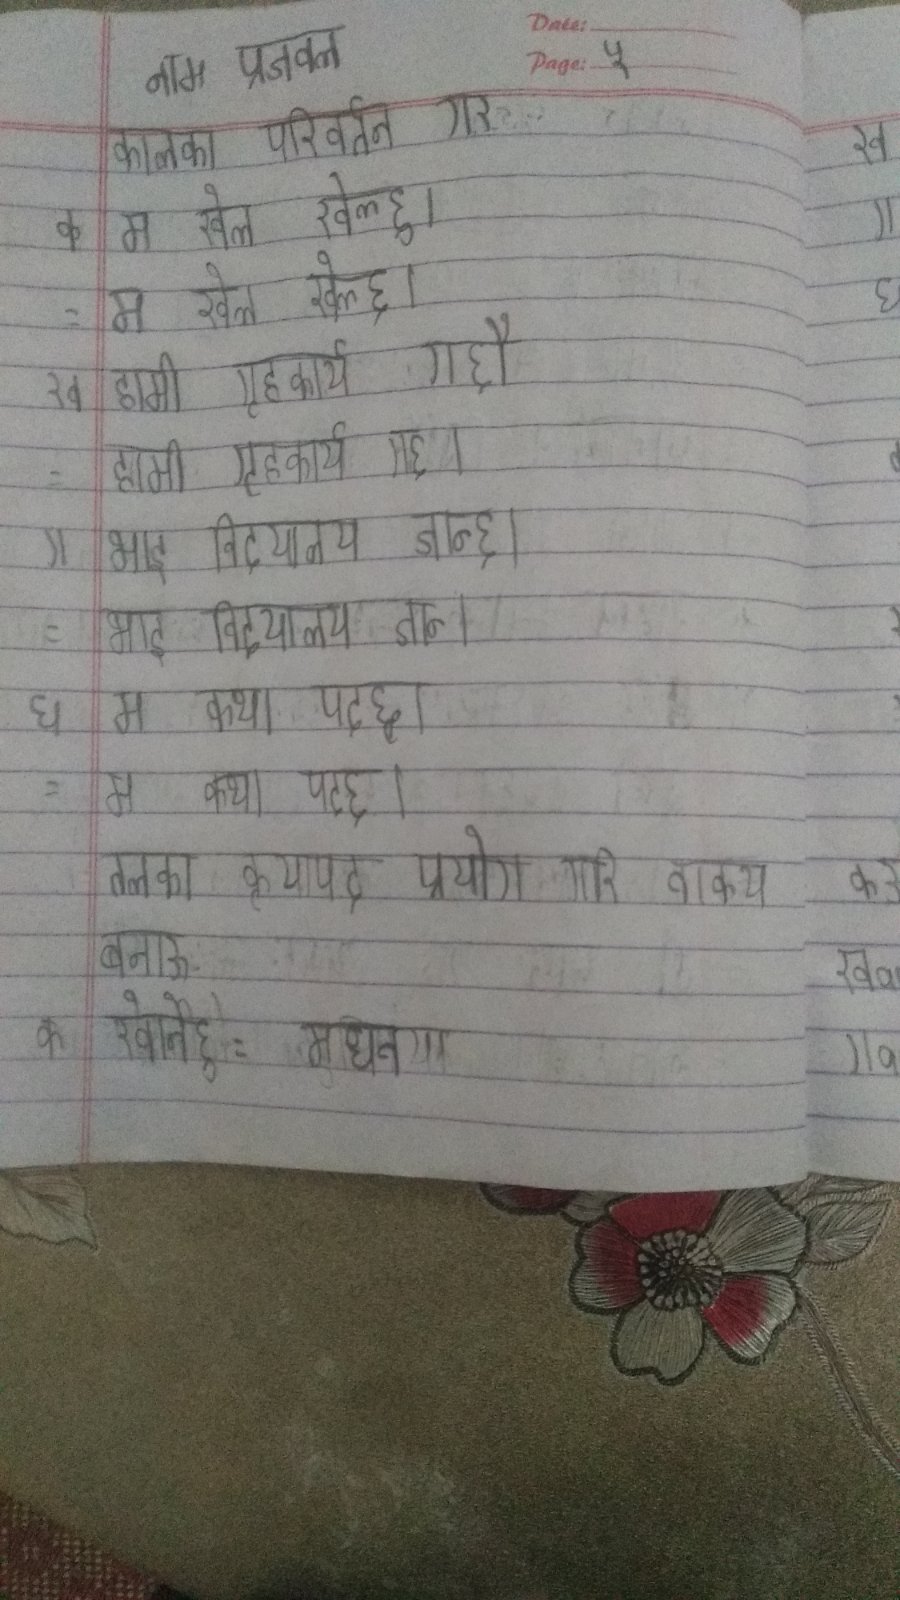 Date:
नाम प्रजवल
Page: ५
कालका परिवर्तन गर
क म खेल खेल्छु।
= म खेल खेल्छ।
ख हामी गृहकार्य गर्छौ
= हामी गृहकार्य गर्छ।
ग भाइ विद्यालय जान्छ।
= भाइ विद्यालय जान।
घ म कथा पढ्छु।
= म कथा पढ्छ।
तलका कृयापद प्रयोग गरि वाकय
बनाऊ
क खानेछु =
ख
ग
घ